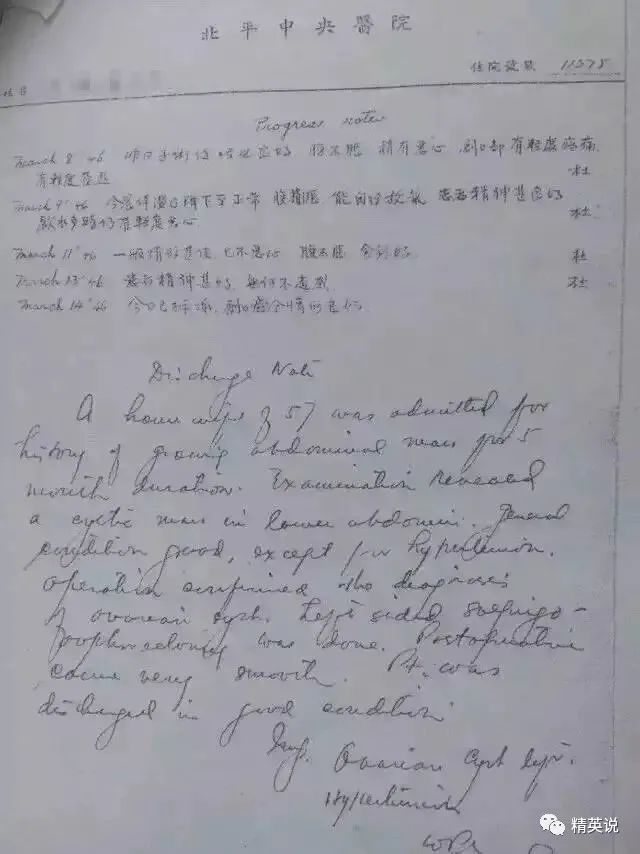 北平中央醫院
住院號數 11378
Progress notes
March 8 '46 昨日手術後 腹不脹 稍有惡心 創口部有輕度疼痛
杜
March 9 '46 今晨体溫已降下至正常 腹稍脹 能自行放氣 患者精神甚良好
飲水多時仍有輕度惡心
杜
March 11 '46 一般情形甚佳 已不惡心 腹不脹 食慾好
杜
March 13 '46 患者精神甚好 無何不適
杜
March 14 '46 今日已 創口 情形良好
Discharge Note
A housewife of 57 was admitted for
history of growing abdominal mass for 5
month duration. Examination revealed
a cystic mass in lower abdomen. General
condition good, except for hypertension.
Operation confirmed the diagnosis
of ovarian cyst. Left sided salpingo-
oophorectomy was done. Postoperative
course very smooth. Pt. was
discharged in good condition.
Imp. Ovarian cyst left.
Hypertension
精英说